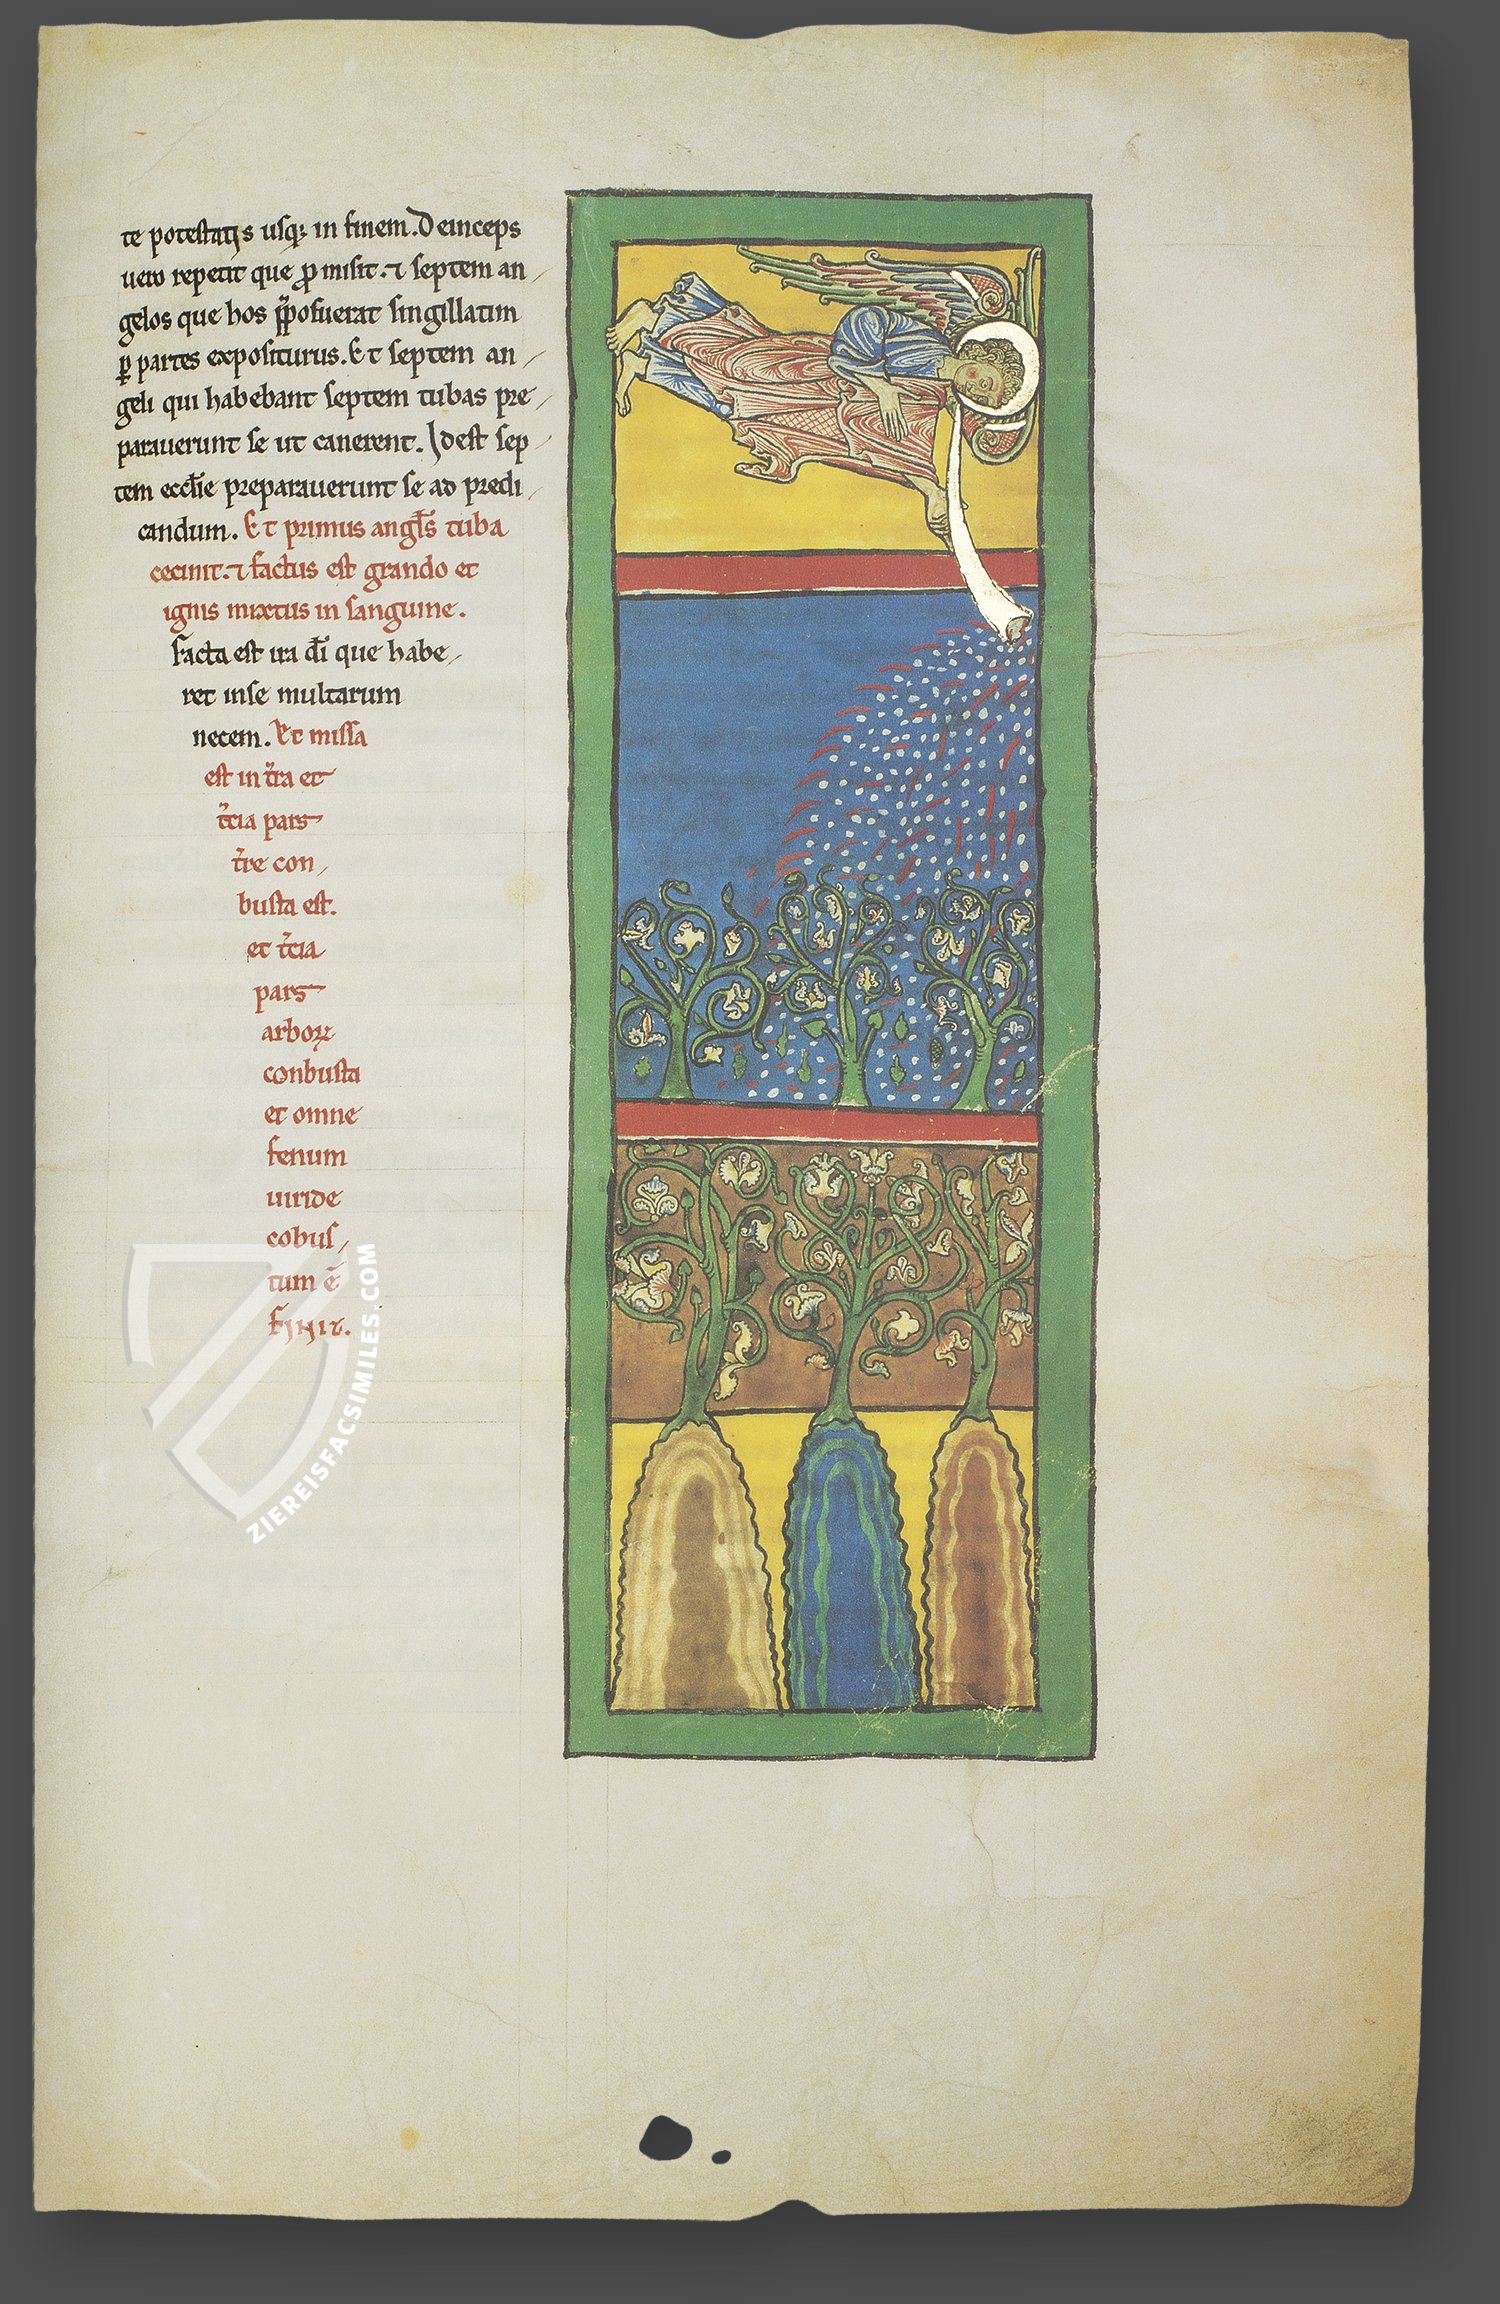 te potestatis usq; in finem. Deinceps
uero repetit que p̄misit. ⁊ septem an
gelos que hos p̄posuerat singillatim
ꝑ partes expositurus. Et septem an
geli qui habebant septem tubas pre
parauerunt se ut canerent. Idest sep
tem eccl̄ie preparauerunt se ad predi
candum. Et primus angl̄s tuba
cecinit. ⁊ factus est grando et
ignis mixtus in sanguine.
facta est ira d̄i que habe
ret inse multarum
necem. Et missa
est in t̄ra et
t̄cia pars
t̄re con
busta est.
et t̄cia
pars
arboꝝ
conbusta
et omne
fenum
uiride
cobus
tum ē
finit.
ZIEREISFACSIMILES.COM